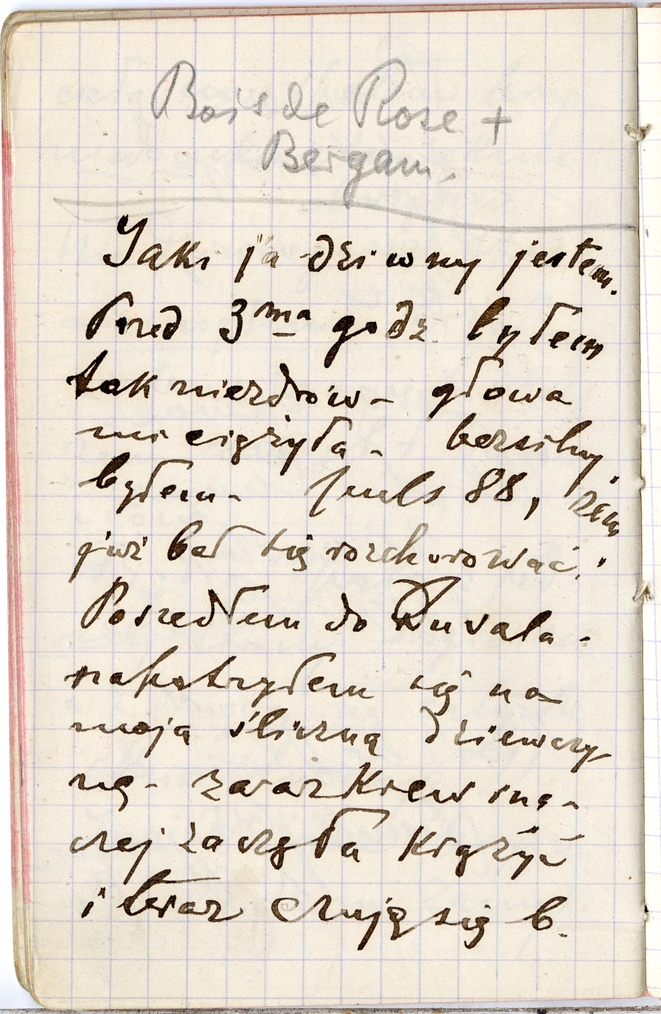 Bois de Rose +
Bergam.
Jaki ja dziwny jestem.
Przed 3ma godz. byłem
tak niezdrów – głowa
mi ciężyła – bezsilny
byłem – puls 88, żem
już bał się rozchorować!
Poszedłem do Duvala –
napatrzyłem się na
moją śliczną dziewczy
nę – zaraz krew ina-
czej zaczęła krążyć
i teraz czuję się b.